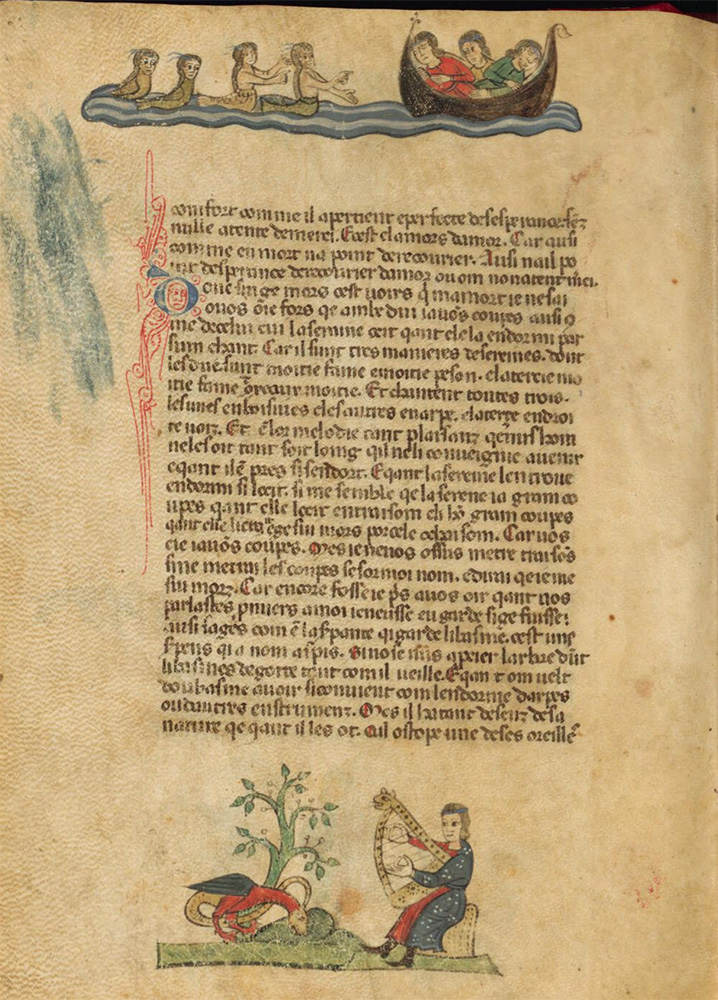 comfort comme il apertient eperfecte desesperance. sez
nulle atente demerci. Cest clamors damor. Car ausi
comme en mort na point derecourier. Ausi nail po
int desperance derecourier damor ou om nonatent mci.
Donc sui ge mors cest voirs q̃ ma mort ie ne sai
ouos oïe fors qe ambedui iauōs coupes ausi 9
me decelui cui la seraine ocit qant ele la endormi par
sum chant. Car il sunt tres manieres de sereines. dont
les due sunt moitie fame emoitie peson. elaterceie mo
itie fame oiseaux moitie. Et chantent toutes trois.
les unes en boisines eles autres en arpe. elaterce endroi
te uoiz. Et ēlor melodie tant plaisanz qe nuls hom
ne les oit tant soit loing qil neli conueigne auenir
eqant il ē pres si sendort. Eqant la sereine len troue
endormi si locit. si me semble qe la serene ia grant co
upes qant elle locit entraison eli hō grant coupes
qant elle li ocit ge sui mors por cele ochaison. Car uos
eie iauōs coupes. Mes ie ne uos os sus metre traisōs
sine metrai les coupes se sor moi nom. edirai qe ie me
sui morz. Car encore fosse ie p̃s auos oir qant uos
parlastes primers amoi ie neusse eu garde si ge fuisse
ausi sages com ē laspis qi garde li basme. cest une
serpens qi a nom aspis. si nose nus aprier larbre dūt
li basmes degoute tant com il ueille. Eqant om uelt
dou basme auoir si conuient com lendorme darpes
ou dautres enstrumenz. Mes il ha tant de senz de sa
nature qe qant il les ot. cil estope une de ses oreille